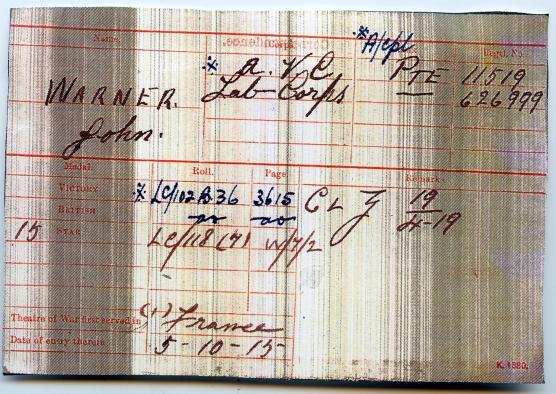 Name. Corps. Regtl. No.
* A/cpl
* A. V. C. PTE 11519
WARNER. Lab-Corps — 626999
John.
Medal. Roll. Page. Remarks
VICTORY * LC/102 B36 3615 CL Z 19
BRITISH do do 4-19
15 STAR LC/118 (7) W/7/2
Theatre of War first served in (1) France
Date of entry therein 5-10-15
K. 1380.